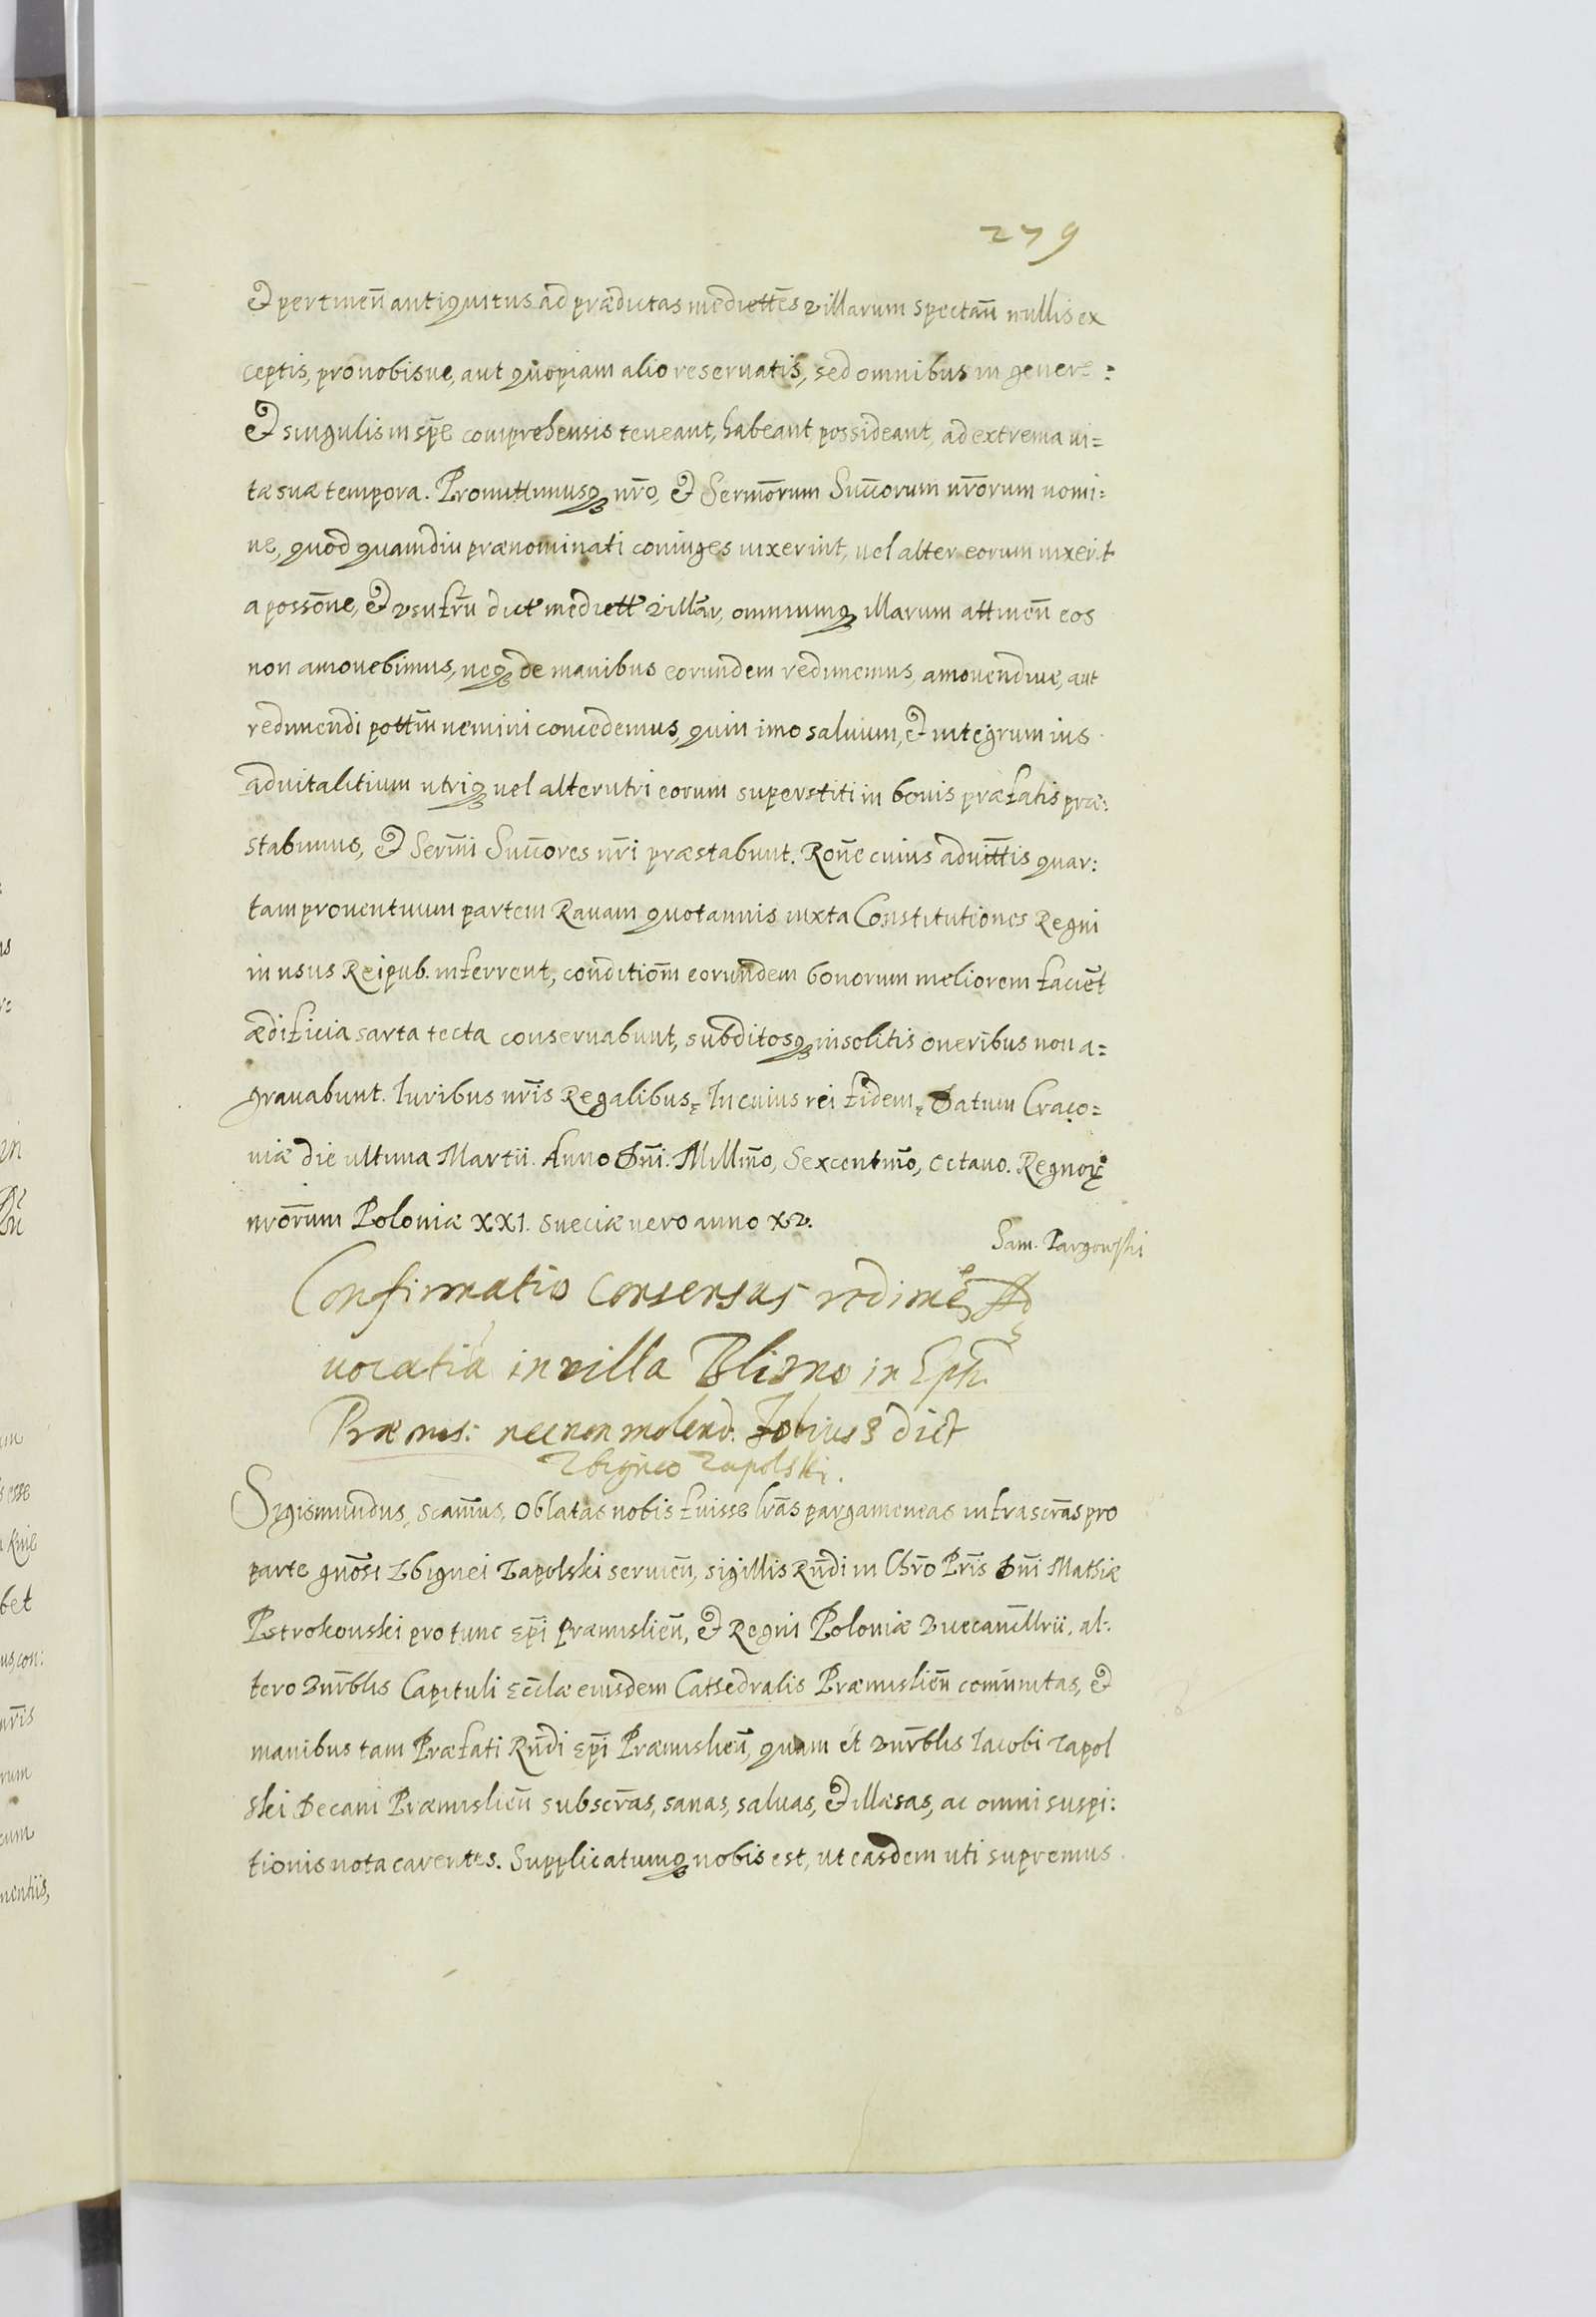 279
Et pertineñ antiquitus ad prædictas mediettes villarum spectañ nullis ex
ceptis, pro nobisue, aut quopiam alio reseruatis, sed omnibus in genere:
Et singulis in sp̃e comprehensis teneant, habeant possideant, ad extrema ui=
tæ suæ tempora. Promittimusq; nr̃o, Et Serm̃orum Succ̃orum nr̃orum nomi:
ne, quod quamdiu prænominati coniuges uixerint, uel alter eorum uixerit
a possõne, Et vsufr̃u dict mediett villar̃, omniumq; illarum attineñ eos
non amouebimus, neq; de manibus eorundem redimemus, amouendiue, aut
redimendi pottm̃ nemini concedemus, quin imo saluum, Et integrum ius
aduitalitium utriq; uel alterutri eorum superstiti in bonis præfatis præ:
stabimus, Et Serm̃i Succ̃ores nr̃i præstabunt. Rõne cuius aduittis quar:
tam prouentuum partem Rauam quotannis iuxta Constitutiones Regni
in usus Reipub. inferrent, conditiõm eorundem bonorum meliorem faciẽt
ædificia sarta tecta conseruabunt, subditosq; insolitis oneribus non a=
grauabunt. Iuribus nr̃is Regalibus, In cuius rei fidem, Datum Craco=
uiæ die ultima Martii. Anno Dñi. Millm̃o, Sexcentm̃o, Octauo. Regnoꝝ
nr̃orum Poloniæ XXI. Sueciæ uero anno XV.
Sam. Targowski
Confirmatio Consensus redimẽ Ad
uocatiã in villa Blizne in Eph.
Præmis: necnon molend. dict
Zbigneo Zapolski.
Sigismundus, Scam̃us, Oblatas nobis fuisse lr̃as pargameneas infrascr̃as pro
parte gnõsi Zbignei Zapolski seruieñ, sigillis Rñdi in Chr̃o Pr̃is Dñi Mathiæ
Pstrokonski pro tunc Ep̃i Præmislieñ, Et Regni Poloniæ Vicecancllrii, al:
tero Vnr̃blis Capituli Eccl̃æ eiusdem Cathedralis Præmislieñ com̃unitas, Et
manibus tam Præfati Rñdi Ep̃i Præmislieñ, quam et Vnr̃blis Iacobi Zapol
ski Decani Præmislieñ subscr̃as, sanas, saluas, Et illæsas, ac omni suspi:
tionis nota carentes. Supplicatumq; nobis est, ut easdem uti supremus